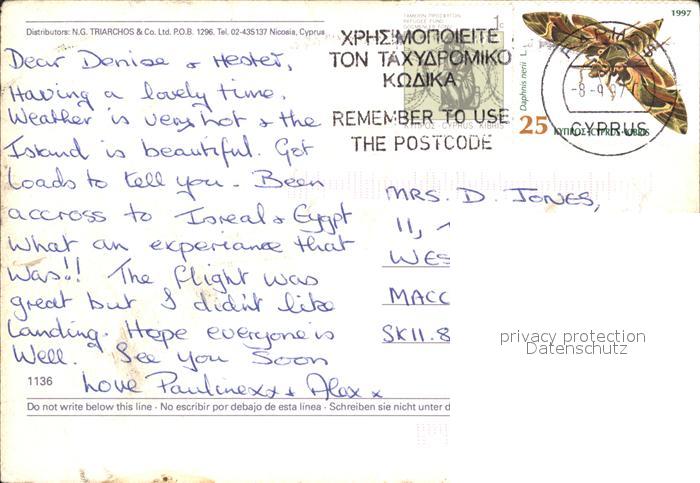 Distributors: N.G. TRIARCHOS & Co. Ltd. P.O.B. 1296. Tel. 02-435137 Nicosia, Cyprus
Dear Denise & Hester,
Having a lovely time.
Weather is very hot & the
Island is beautiful. Got
Loads to tell you. Been
accross to Isreal & Eygpt
what an experiance that
was!! The flight was
great but I didn't like
Landing. Hope everyone is
Well. See you Soon
1136
Love Paulinexx & Alex x
Do not write below this line - No escribir por debajo de esta línea - Schreiben sie nicht unter d
1c
ΚΥΠΡΟΣ-CYPRUS-KIBRIS
ΧΡΗΣΙΜΟΠΟΙΕΙΤΕ
ΤΟΝ ΤΑΧΥΔΡΟΜΙΚΟ
ΚΩΔΙΚΑ
REMEMBER TO USE
THE POSTCODE
1997
Daphnis nerii L.
25 ΚΥΠΡΟΣ-CYPRUS-KIBRIS
-8-9.97
CYPRUS
MRS. D. JONES,
11,
WES
MACC
SK11.8
privacy protection
Datenschutz